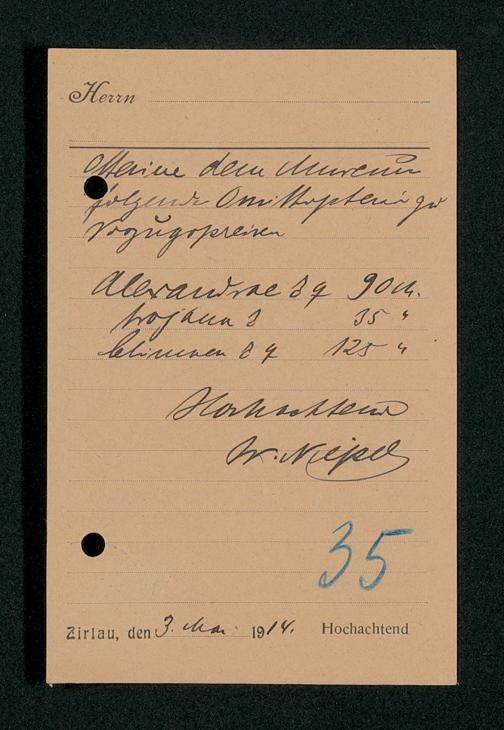 Herrn
Offeriere dem Museum
folgende Ornithoptera zu
Vorzugspreisen
Alexandrae ♂ ♀ 90 M.
trojana ♂ 35 "
♂ ♀ 125 "
Hochachtend
W. Niepelt
35
Zirlau, den 3. Mai. 1914. Hochachtend